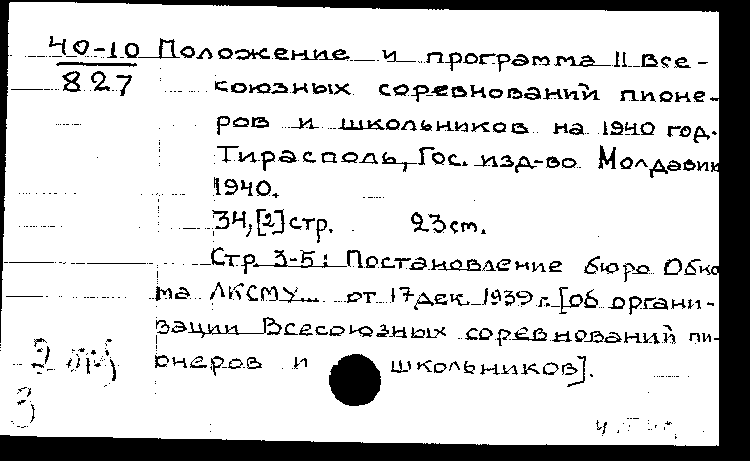 40-10 Положение и программа II Все-
827
союзных соревнований пионе-
ров и школьников на 1940 год.
Тирасполь, Гос. изд-во Молдавии
1940.
34,[2] стр. 23 см.
Стр. 3-5: Постановление бюро Обко
ма ЛКСМУ... от 17 дек. 1939 г. [об органи-
зации Всесоюзных соревнований пи-
онеров и школьников].
2
3